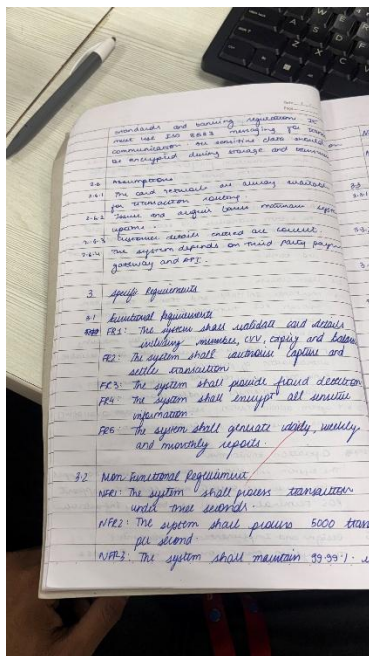 standards and banking regulation It
must use ISO 8583 messaging for
communication All sensitive data should
be encrypted during storage and
2.6 Assumptions
2.6.1 The card networks are always available
for transaction routing
2.6.2 Issuer and acquirer banks maintain
uptime.
2.6.3 Customer details entered are correct.
2.6.4 The system depends on third party
gateway and API.
3 Specific Requirements
3.1 Functional Requirements
FR1: The system shall validate card details
including number, CVV, expiry and balance
FR2: The system shall authorise capture and
settle transaction
FR3: The system shall provide fraud detection
FR4: The system shall encrypt all sensitive
information
FR5: The system shall generate daily, weekly
and monthly reports.
3.2 Non Functional Requirement
NFR1: The system shall process transaction
under three seconds.
NFR2: The system shall process 5000 tran
per second
NFR3: The system shall maintain 99.99%.